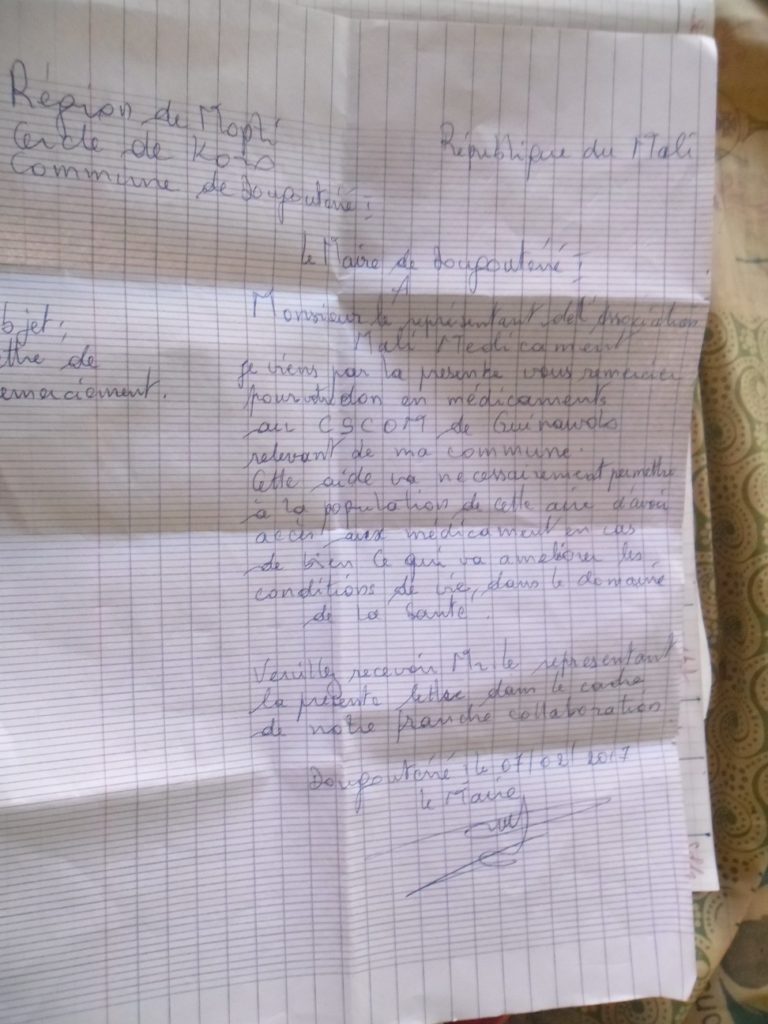 Région de Mopti
Cercle de Koro
Commune de Dougouténé I
République du Mali
Le Maire de Dougouténé I
A
Monsieur le représentant de l'Association
Mali Médicament
bjet;
ttre de
emerciement.
Je viens par la présente vous remercier
pour votre don en médicaments
au CSCOM de Guinawolo
relevant de ma commune.
Cette aide va necessairement permettre
à la population de cette aire d'avoir
accès aux médicament en cas
de bien ce qui va améliorer les
conditions de vie, dans le domaine
de la santé.
Veuillez recevoir Mr le representant
la présente lettre dans le cadre
de notre franche collaboration
Dougouténé I le 07/02/2017
Le Maire